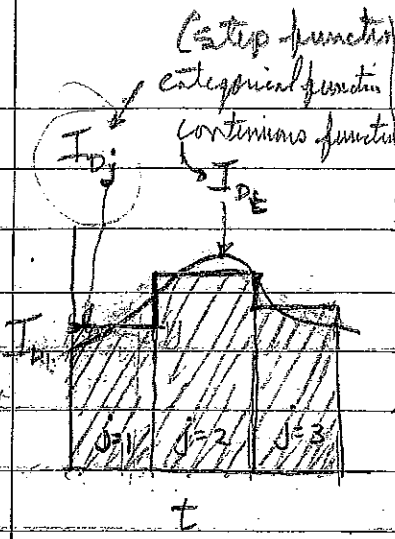 (step functio
categorical functi
continious functio
I_Dj
I_Dt
I_D1
j=1 j=2 j=3
t